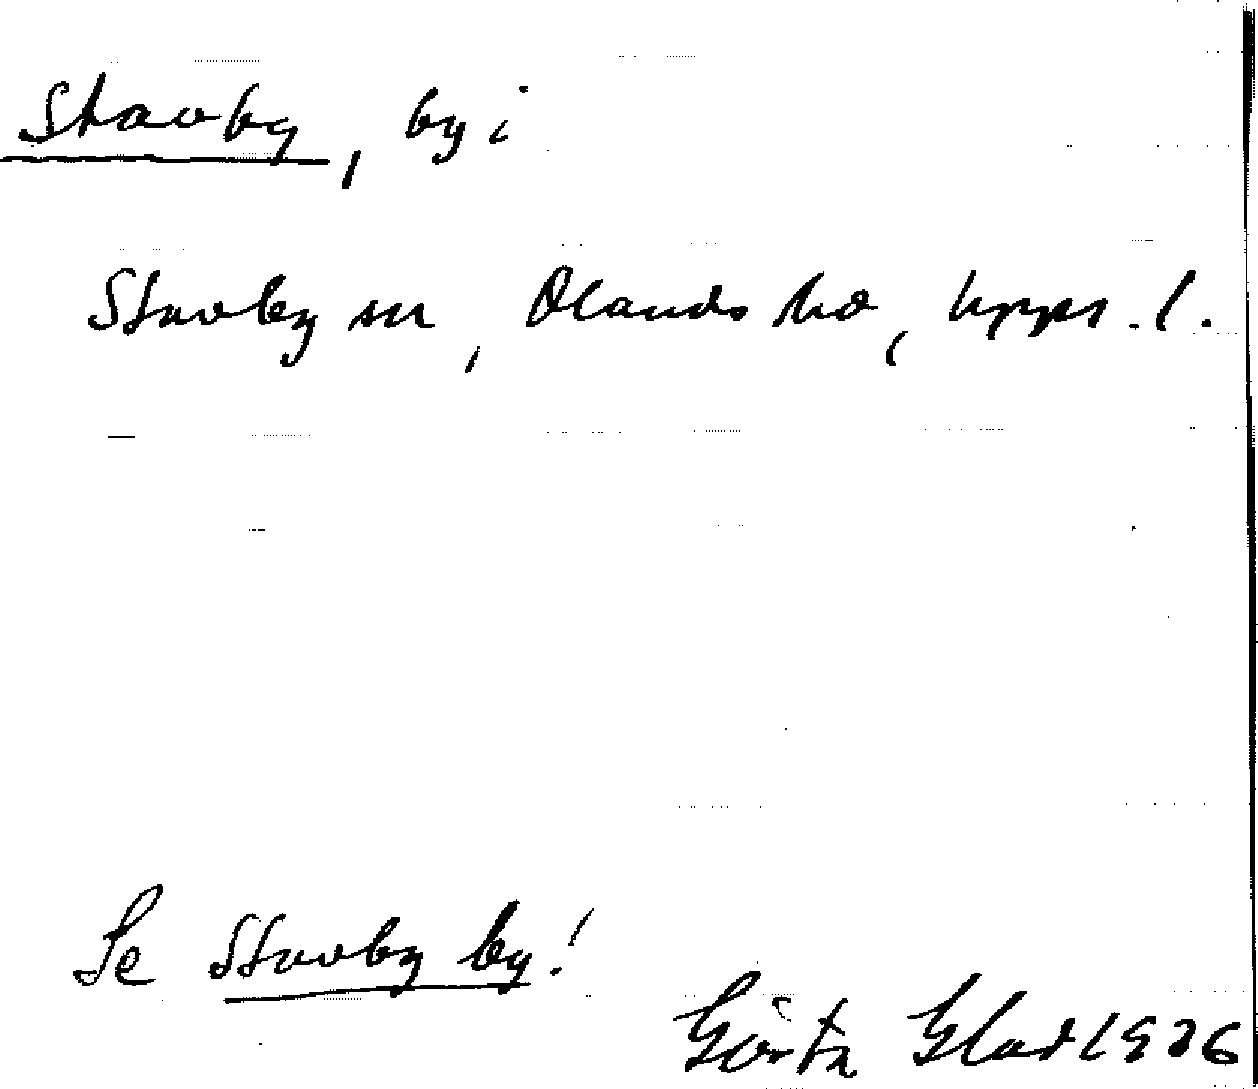 Stavby, by i
Stavby sn, Olands hd, Upps. l.
Se Stavby by!
Gösta Glad 1926